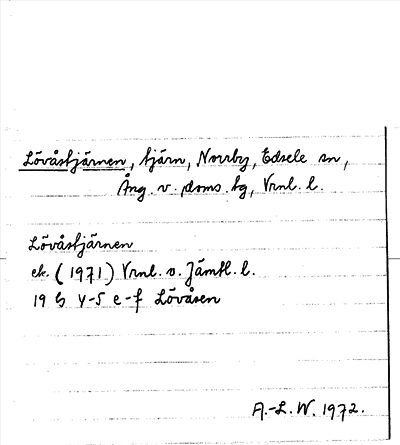 Lövåstjärnen, tjärn, Norrby, Edsele sn,
Ång. v. doms. tg, Vrnl. l.
Lövåstjärnen
ek. (1971) Vrnl. o. Jämtl. l.
19 G 4-5 e-f Lövåsen
A.-L. W. 1972.